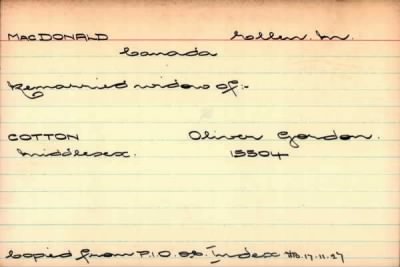 MACDONALD Mollen. M.
Canada
Remarried widow of:-
COTTON Oliver Gordon.
Middlesex. 15504
Copied from P.I.O. Index 17.11.27